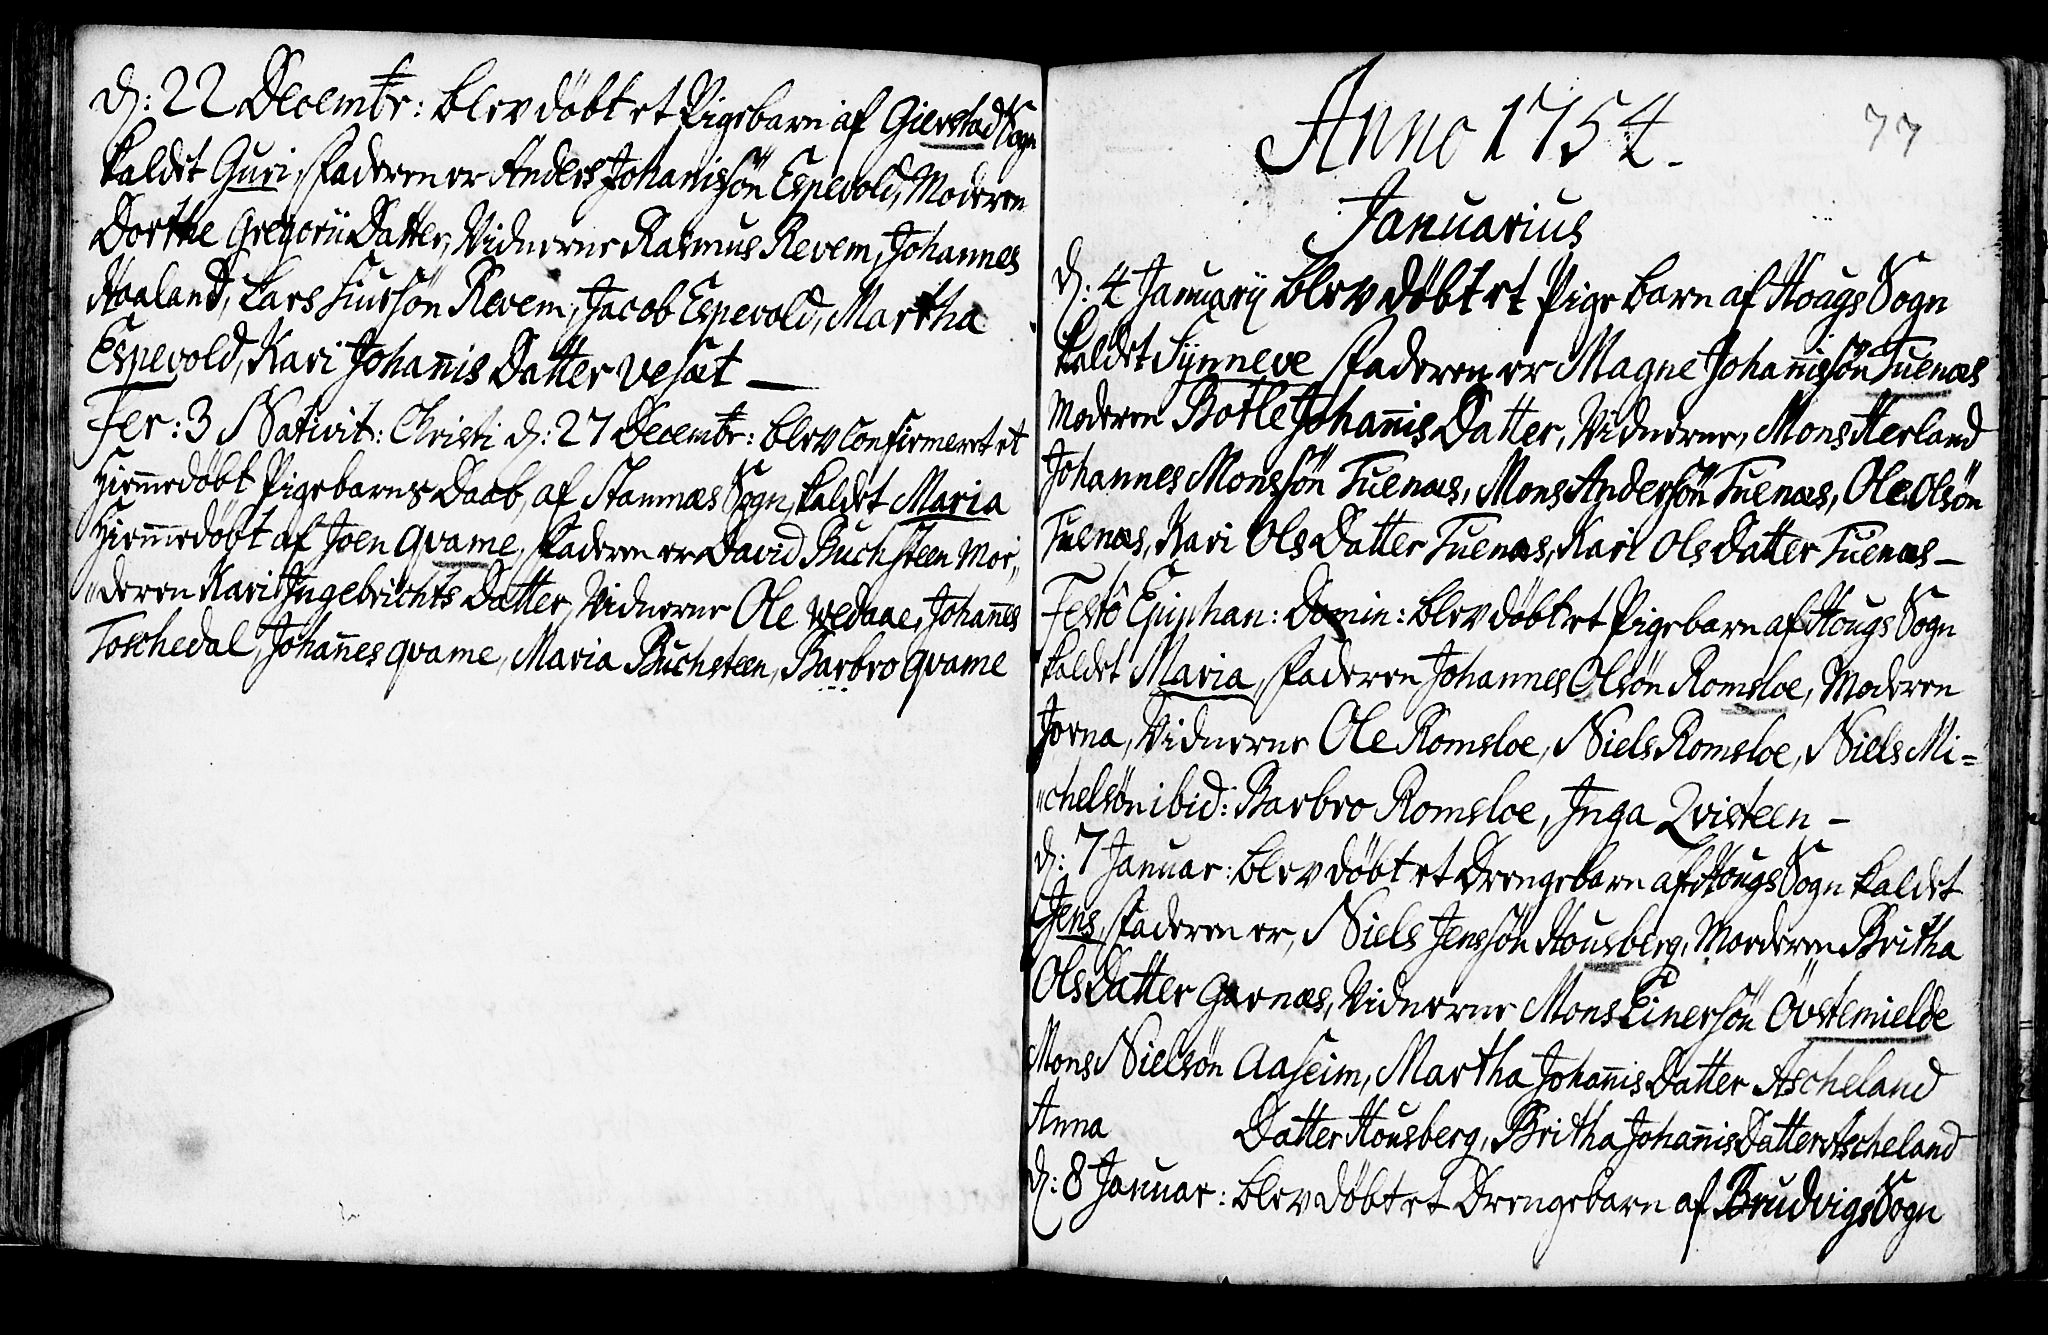 d: 22 Decembr: blev döbt et Pigebarn af Gierstad Sogn
kaldet Guri, Faderen er Anders Johanissön Espevold, Moderen
Dorthe Gregorii Datter, Vidnerne Rasmus Revem, Johannes
Haaland, Lars Siursön Revem, Jacob Espevold, Martha
Espevold, Kari Johan̄is Datter Vesæt —
Fer: 3 Nativit: Christi d: 27 Decembr: blev Confirmeret et
Hiem̄edöbt Pigebarns Daab, af Stamnæs Sogn, kaldet Maria
Hiem̄edöbt af Joen Qvame, Faderen er David Buchsteen Mo¬
„deren Kari Ingebrichts Datter, Vidnerne Ole Vedaae, Johan̄es
Toschedal, Johan̄es Qvame, Maria Buchsteen, Barbro Qvame
77
Anno 1754.
Januarius
d: 4 Januarij blev döbt et Pige barn af Hougs Sogn
kaldet Synneve Faderen er Magne Johan̄issön Tuenæs
Moderen Botle Johan̄is Datter, Vidnerne, Mons Herland
Johannes Monssön Tuenæs, Mons Andersön Tuenæs, Ole Olsön
Tuenæs, Kari Ols Datter Tuenæs, Kari Ols datter Tuenæs —
Festô Epiphan: Domin: blev döbt et Pigebarn af Hougs Sogn
kaldet Maria, Faderen Johannes Olsön Romsloe, Moderen
Jorna, Vidnerne Ole Romsloe, Niels Romsloe, Niels Mi=
„chelsön ibid: Barbro Romsloe, Inga Qvisteen —
d: 7 Januar: blev döbt et Drengebarn af Hougs Sogn kaldet
Jens, Faderen er, Niels Jenssön Housberg, Moderen Britha
Ols Datter Garnæs, Vidnerne Mons Einersön Övstemielde
Mons Nielsön Aaseim, Martha Johan̄is Datter Ascheland
Anna Datter Housberg, Britha Johan̄is Datter Ascheland
d: 8 Januar: blev döbt et Drengebarn af Brudvigs Sogn